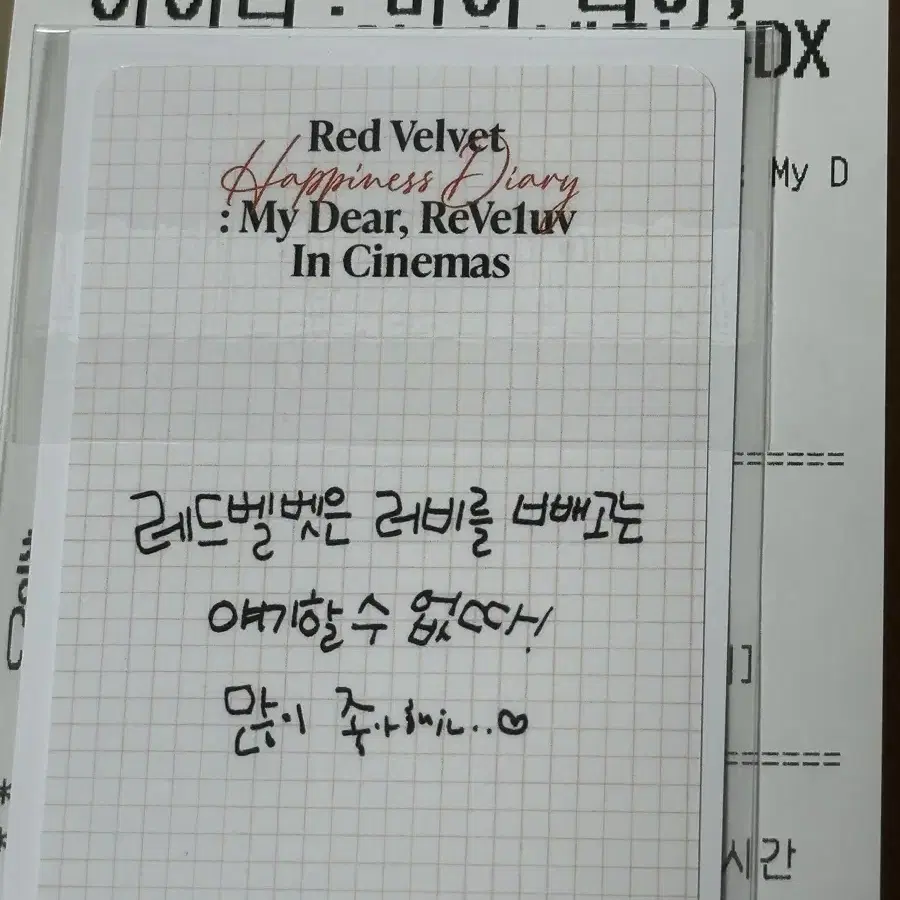 DX
Red Velvet
Happiness Diary
: My Dear, ReVe1uv
In Cinemas
: My D
레드벨벳은 러비를 빼고는
얘기할 수 없따!
많이
시간